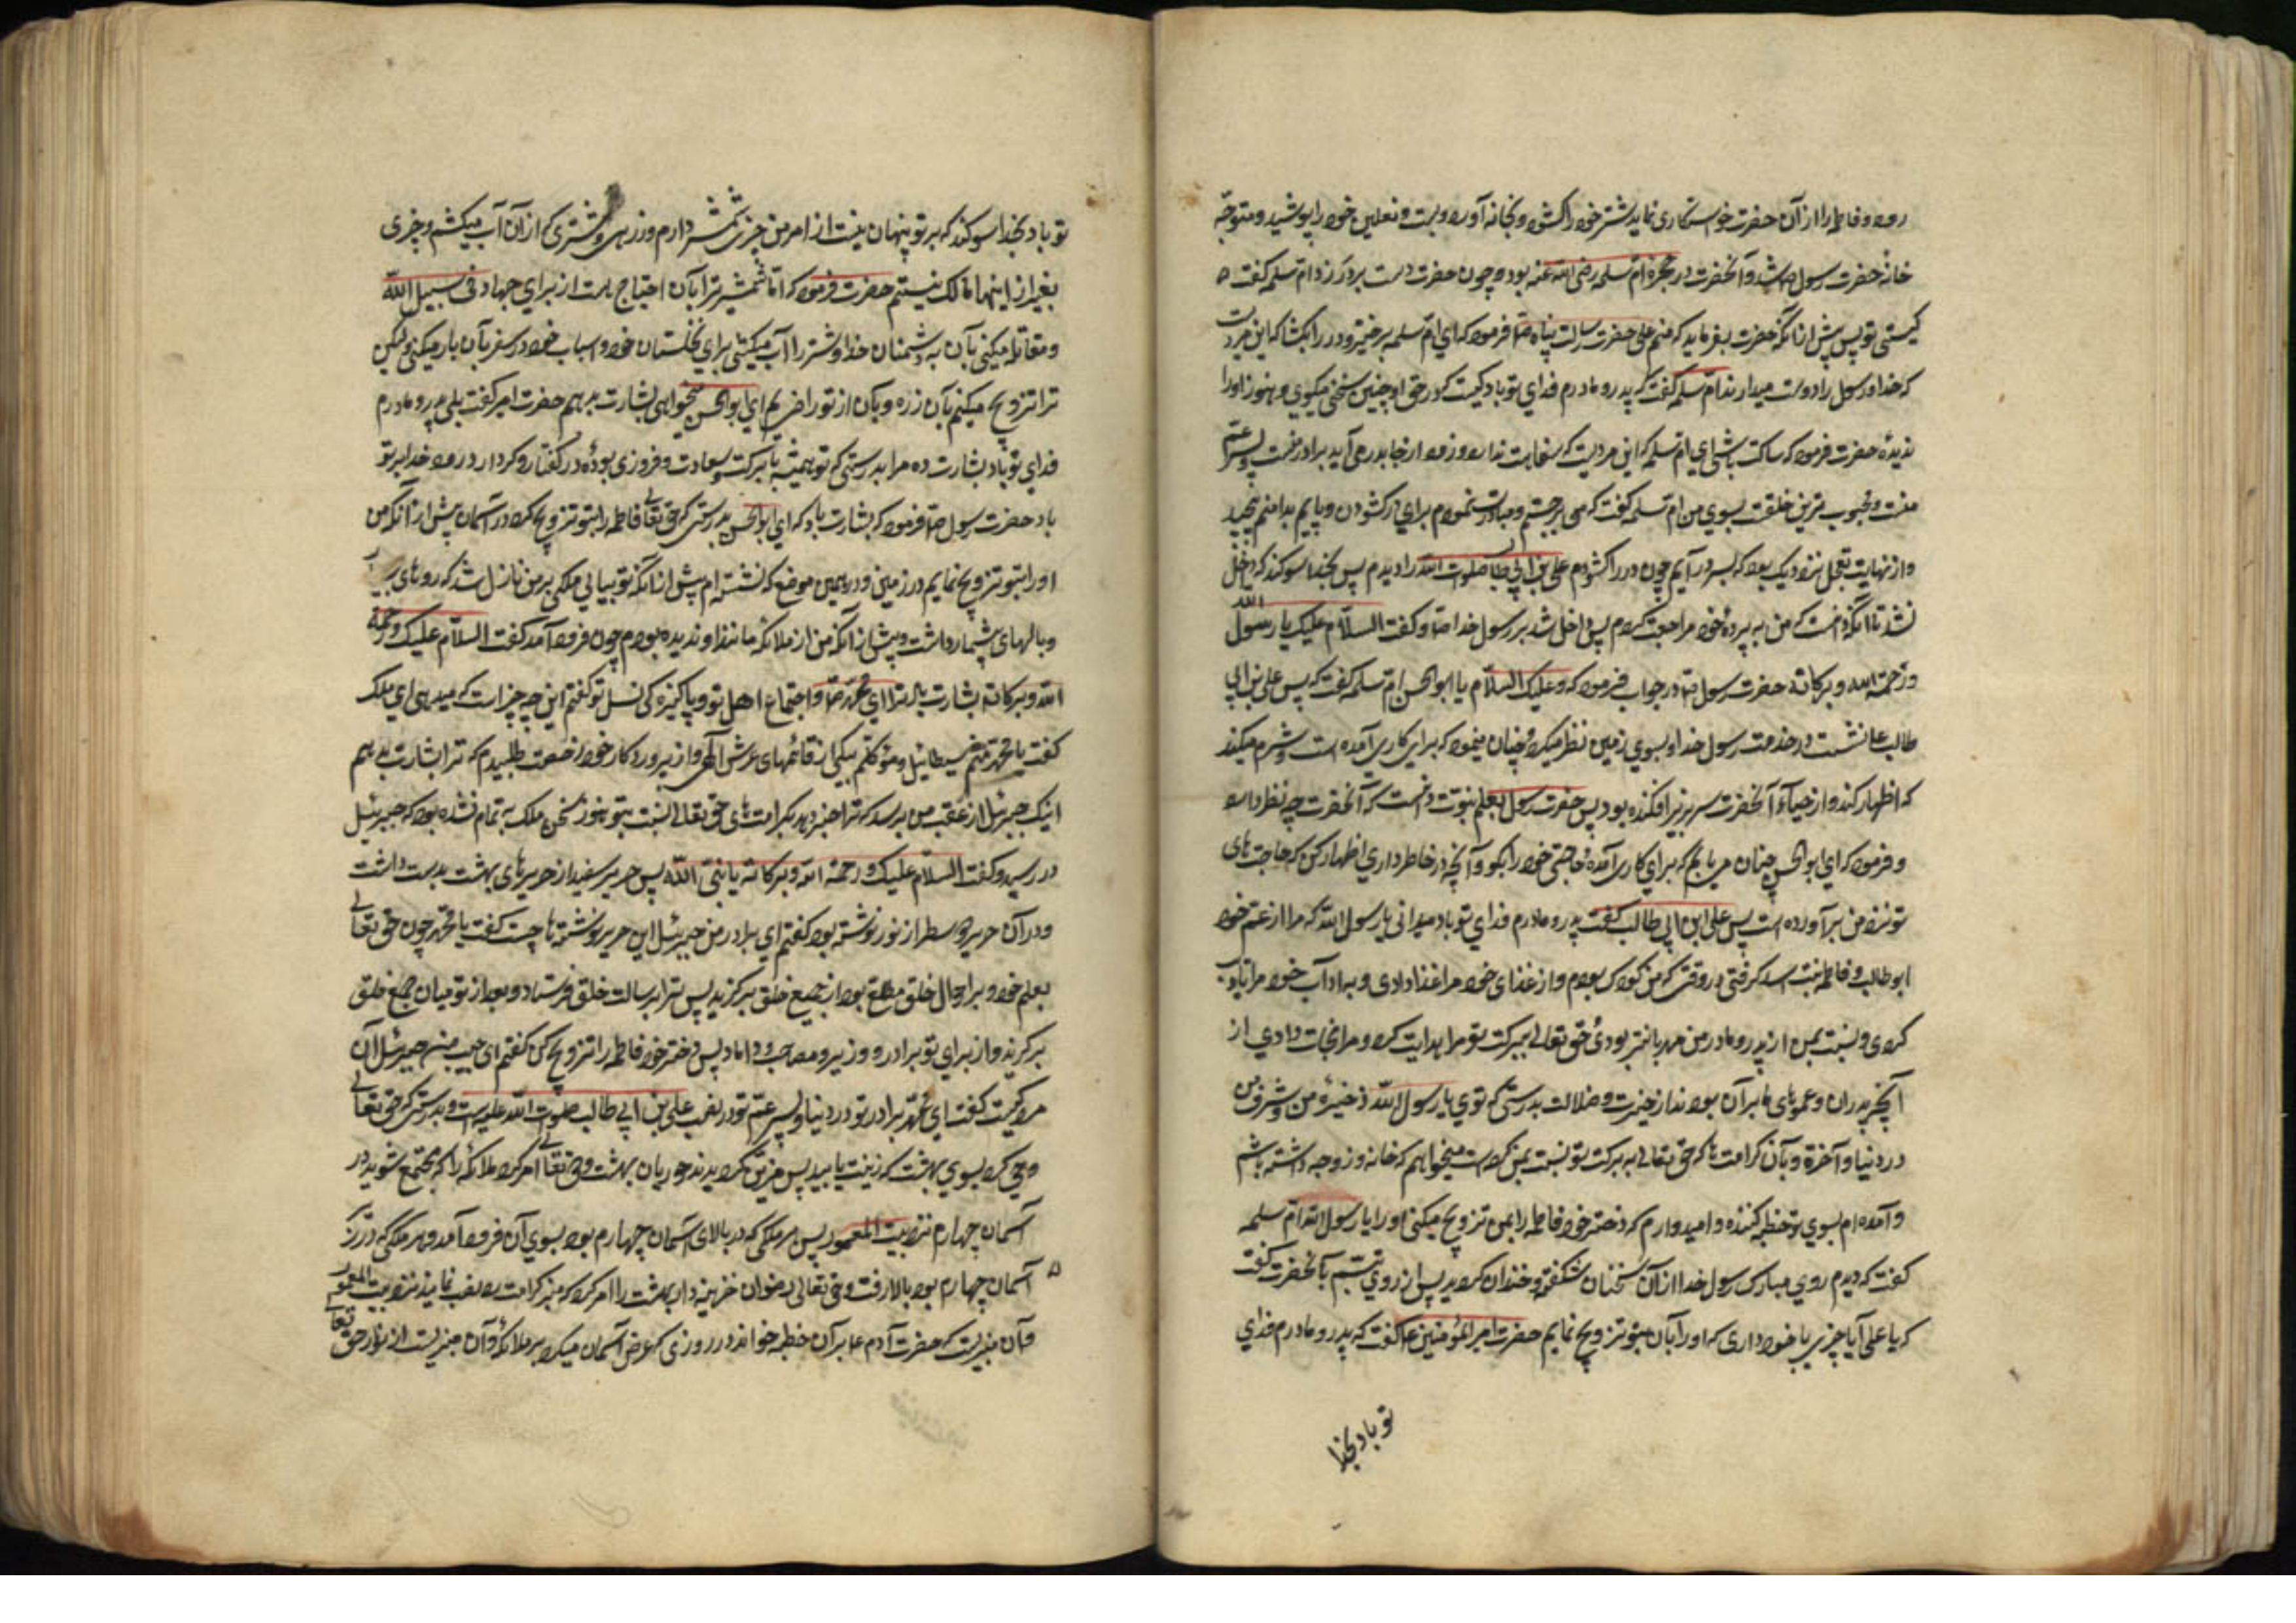 رود و فاطمه را از آن حضرت خواستکاری نماید شتر خود را کشود و بخانه آورد و بست و نعلین خود را پوشید و متوجه
خانهٔ حضرت رسول ص شد و آنحضرت در حجره ام سلمه رضی الله عنه بود و چون حضرت دست بر در زد ام سلمه کفت
کیستی تو پس پیش از آنکه حضرت بفرماید که منم علی حضرت رسالت پناه ص فرمود که ای ام سلمه برخیز و در را بکشا که این مردیست
که خدا و رسول را دوست میدارند ام سلمه کفت که پدر و مادرم فدای تو باد کیست که در حق او چنین سخنی میکوی و هنوز او را
ندیدهٔ حضرت فرمود که ساکت باش ای ام سلمه که این مردیست که سفاهت ندارد و زود از جا بدر نمی آید برادر منست و پسر عم
منست و محبوب ترین خلقست بسوی من ام سلمه کفت که می برجستم و مبادرت نمودم برای در کشودن و پایم بدامنم پیچید
و از نهایت تعجیل نزدیک بود که بسر در آیم چون در را کشودم علی بن ابی طالب صلوات الله را دیدم پس بخدا سوکند که داخل
نشد تا آنکه دانست که من به پردهٔ خود مراجعت کردم پس داخل شد بر رسول خدا ص و کفت السلام علیک یا رسول الله
و رحمة الله و برکاته حضرت رسول ص در جواب فرمود که و علیک السلام یا ابوالحسن ام سلمه کفت که پس علی بن ابی
طالب ع نشست در خدمت رسول خدا و بسوی زمین نظر میکرد و چنان مینمود که برای کاری آمده است و شرم میکند
که اظهار کند و از حیاء آنحضرت سر بزیر افکنده بود پس حضرت رسول بعلم نبوت دانست که آنحضرت چه در نظر دارد
و فرمود که ای ابوالحسن چنان می یابم که برای کاری آمدهٔ حاجتی خود را بکو و آنچه در خاطر داری اظهار کن که حاجت های
تو نزد من برآورده است پس علی ابن ابی طالب کفت پدر و مادرم فدای تو باد میدانی یا رسول الله که مرا از عم خود
ابوطالب و فاطمه بنت اسد کرفتی در وقتی که من کودک بودم و از غذای خود مرا غذا دادی و به اداب خود مرا تادیب
کردی و نسبت بمن از پدر و مادر من مهربانتر بودی حق تعالی ببرکت تو مرا هدایت کرد و مرا نجات دادی از
آنچه پدران و عموهای ما بر آن بودند از حیرت و ضلالت بدرستی که توی یا رسول الله ذخیرهٔ من و شرف من
در دنیا و آخرة و بآن کرامت ها که حق تعالی به برکت تو نسبت بمن کرده است میخواهم که خانه و زوجه داشته باشم
و آمده ام بسوی تو خطبه کننده و امیدوارم که دختر خود فاطمه را بمن تزویج میکنی او را یا رسول الله ام سلمه
کفت که دیدم روی مبارک رسول خدا از آن سخنان شکفته و خندان کردید پس از روی تبسم بآنحضرت کفت
که یا علی آیا چیزی با خود داری که او را بآن بتو تزویج نمایم حضرت امیرالمؤمنین ع کفت که پدر و مادرم فدای
تو باد بخدا
تو باد بخدا سوکند که بر تو پنهان نیست از امر من چیزی شمشیر دارم و زرهی و شتری که از آن آب میکشم و چیزی
بغیر از اینها مالک نیستم حضرت فرمود که اما شمشیر ترا بآن احتیاج هست از برای جهاد فی سبیل الله
و مقاتله میکنی بآن به دشمنان خدا و شتر را آب میکشی برای نخلستان خود و اسباب خود در سفر بآن بار میکنی ولیکن
ترا تزویج میکنم بآن زره و بآن از تو راضی ام ای ابوالحسن میخواهی بشارت بدهم حضرت امیر کفت بلی پدر و مادرم
فدای تو باد بشارت ده مرا بدرستی که تو همیشه با برکت و سعادت و فروزی بودهٔ در کفتار و کردار درود خدا بر تو
باد حضرت رسول ص فرمود که بشارت باد که ای ابوالحسن بدرستی که حق تعالی فاطمه را بتو تزویج کرد در آسمان پیش از آنکه من
او را بتو تزویج نمایم در زمین و در همین موضع که نشسته ام پیش از آنکه تو بیایی ملکی بر من نازل شد که روهای
و بالهای بیشمار داشت و پیش از آنکه من از ملائکه مانند او ندیده بودم چون فرود آمد کفت السلام علیک و رحمة
الله و برکاته بشارت باد ترا ای محمد ص و اجتماع اهل تو و پاکیزه کی نسل تو کفتم این چه چیز است که میدهی ای ملک
کفت یا محمد منم سیطائیل و موکلم بیکی از قائمهای عرش الهی و از پروردکار خود رخصت طلبیدم که ترا بشارت بدهم
اینک جبرئیل از عقب من میرسد که ترا خبر دهد بکرامت های حق تعالی نسبت بتو هنوز سخن ملک به تمام نشده بود که جبرئیل
در رسید و کفت السلام علیک و رحمة الله و برکاته یا نبی الله پس حریر سفید از حریرهای بهشت بدست داشت
و در آن حریر دو سطر از نور نوشته بود کفتم ای برادر من جبرئیل این حریر نوشته ها چیست کفت یا محمد چون حق تعالی
بعلم خود بر احوال خلق مطلع بود از جمیع خلق برکزید پس ترا برسالت خلق فرستاد و بعد از تو میان جمیع خلق
برکزید و از برای تو برادر و وزیر و مصاحب و داماد پس دختر خود فاطمه را تزویج کن کفتم ای حبیب من جبرئیل آن
مرد کیست کفت ای محمد برادر تو در دنیا و پسر عم تو در نسب علی بن ابی طالب صلوات الله علیه است و بدرستی که حق تعالی
وحی کرد بسوی بهشت که زینت یابید پس مزین کردیدند حوریان بهشت و حق تعالی امر کرد ملائکه را که مجتمع شوید در
آسمان چهارم نزد بیت المعمور پس هر ملکی که در بالای آسمان چهارم بود بسوی آن فرود آمد و هر ملکی که در زیر
آسمان چهارم بود بالا رفت و حق تعالی رضوان خزینه دار بهشت را امر کرد که منبر کرامت را نصب نماید نزد بیت المعمور
و آن منبریست که حضرت آدم ع بر آن خطبه خواند در روزی که عرض آسمان میکرد بر ملائکه و آن منبریست از نور حق تعالی